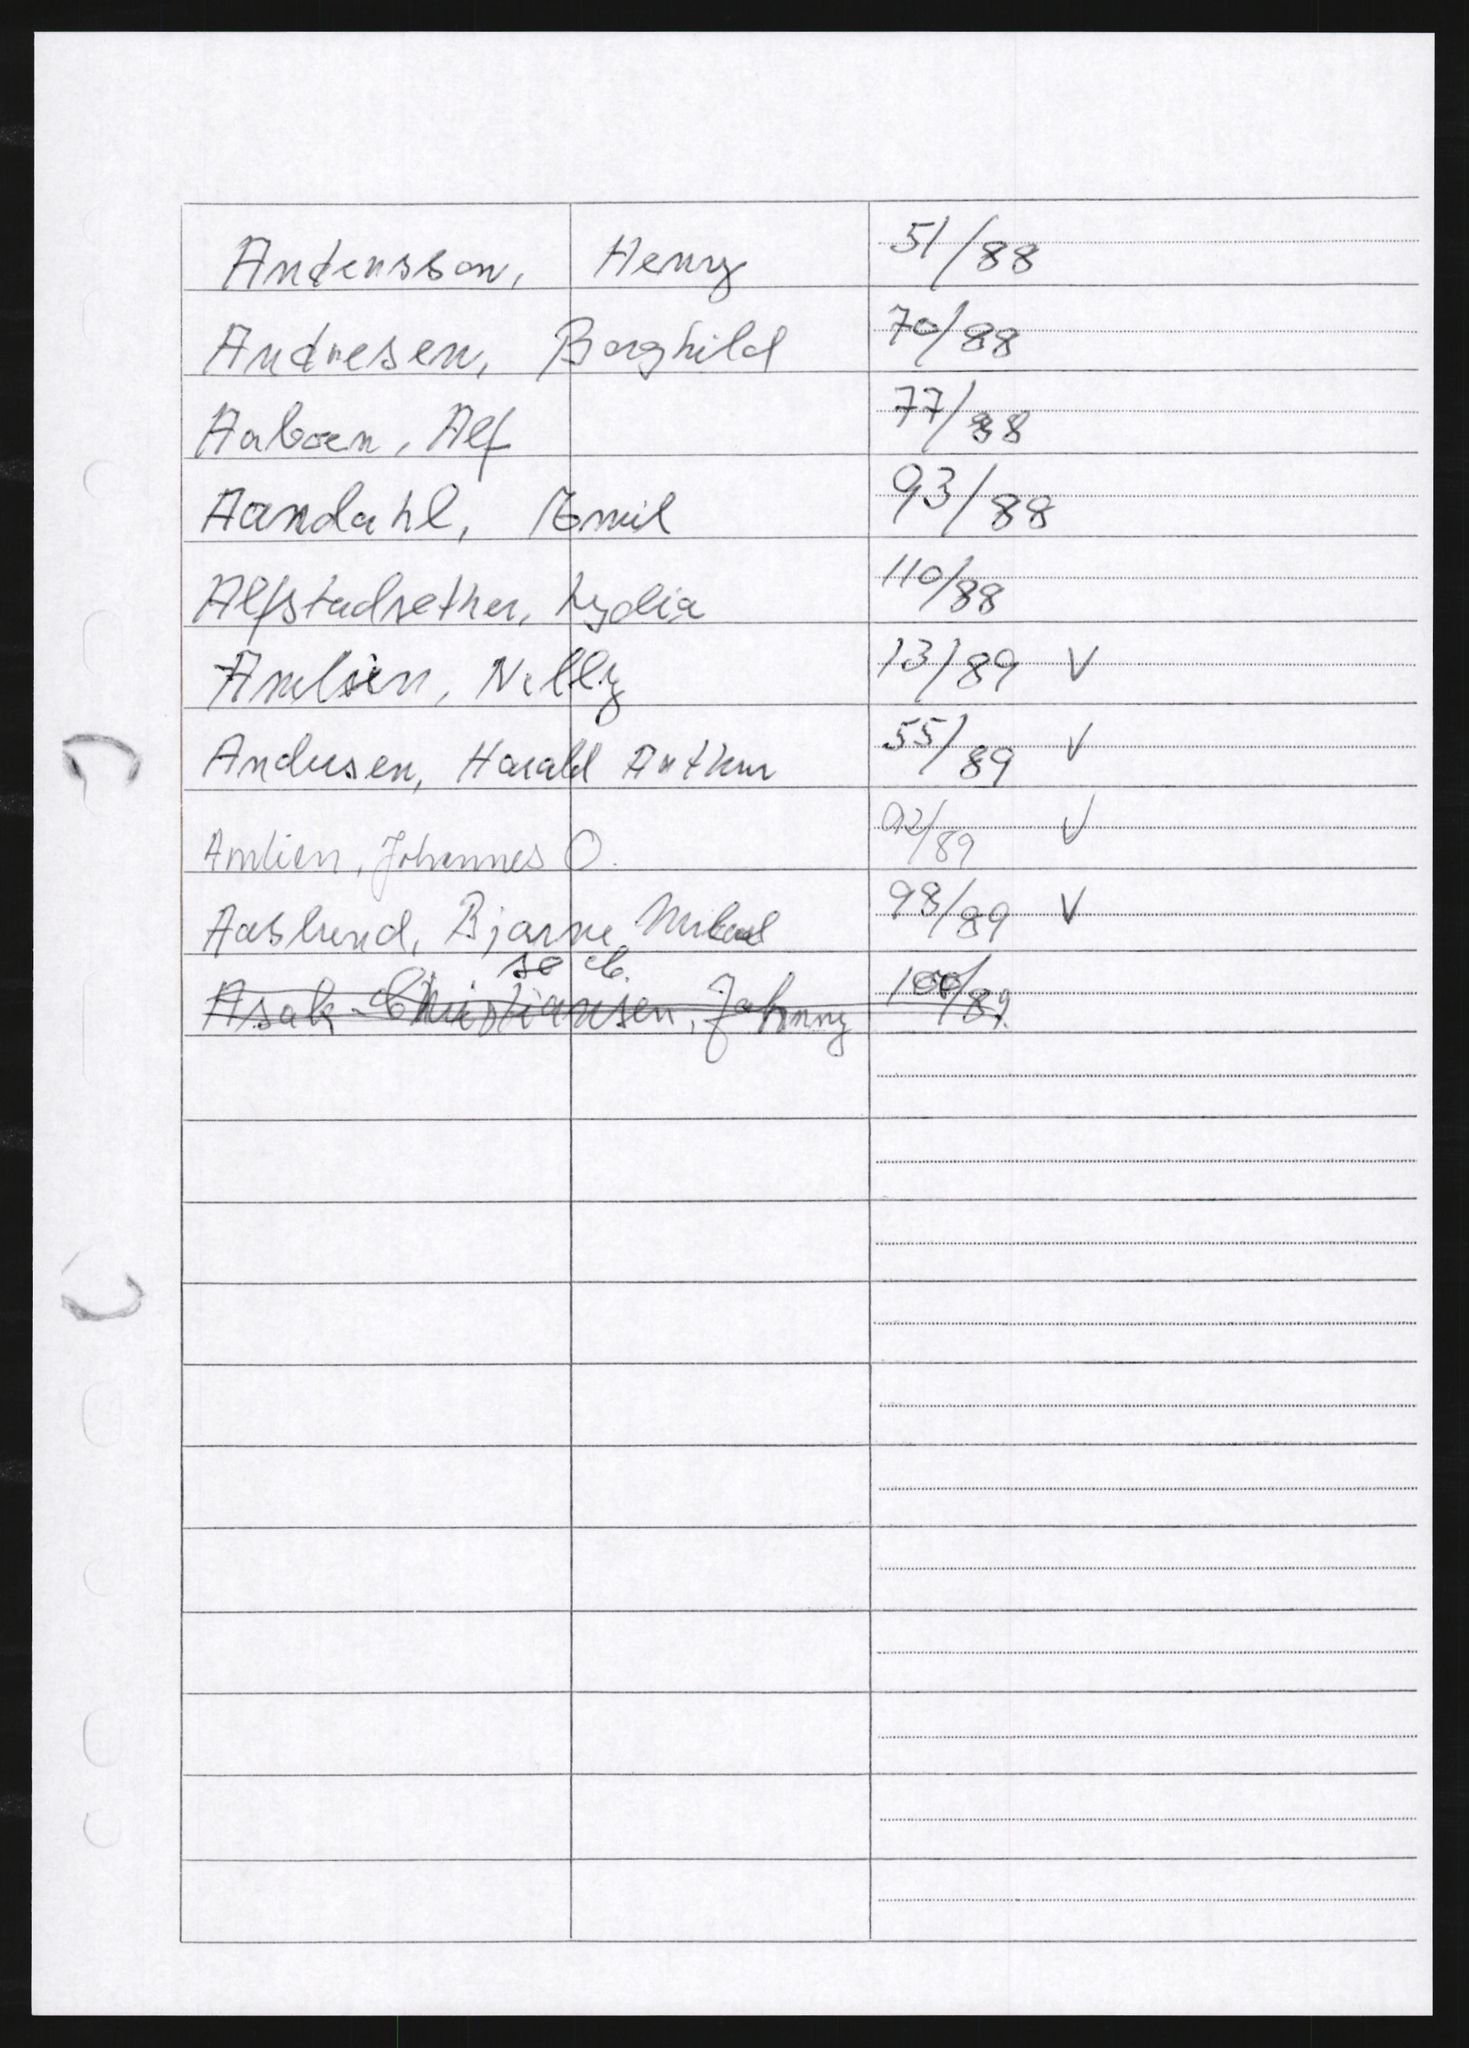 Andersson, Henry 51/88
Andresen, Borghild 70/88
Aaboen, Alf 77/88
Aandahl, Emil 93/88
Alfstadsether, Lydia 110/88
Amlien, Nelly 13/89 V
Andersen, Harald Arthur 55/89 V
Amlien, Johannes O. 92/89 V
Aaslund, Bjarne 98/89 V
se
Asak-Christiansen, Johnny /89